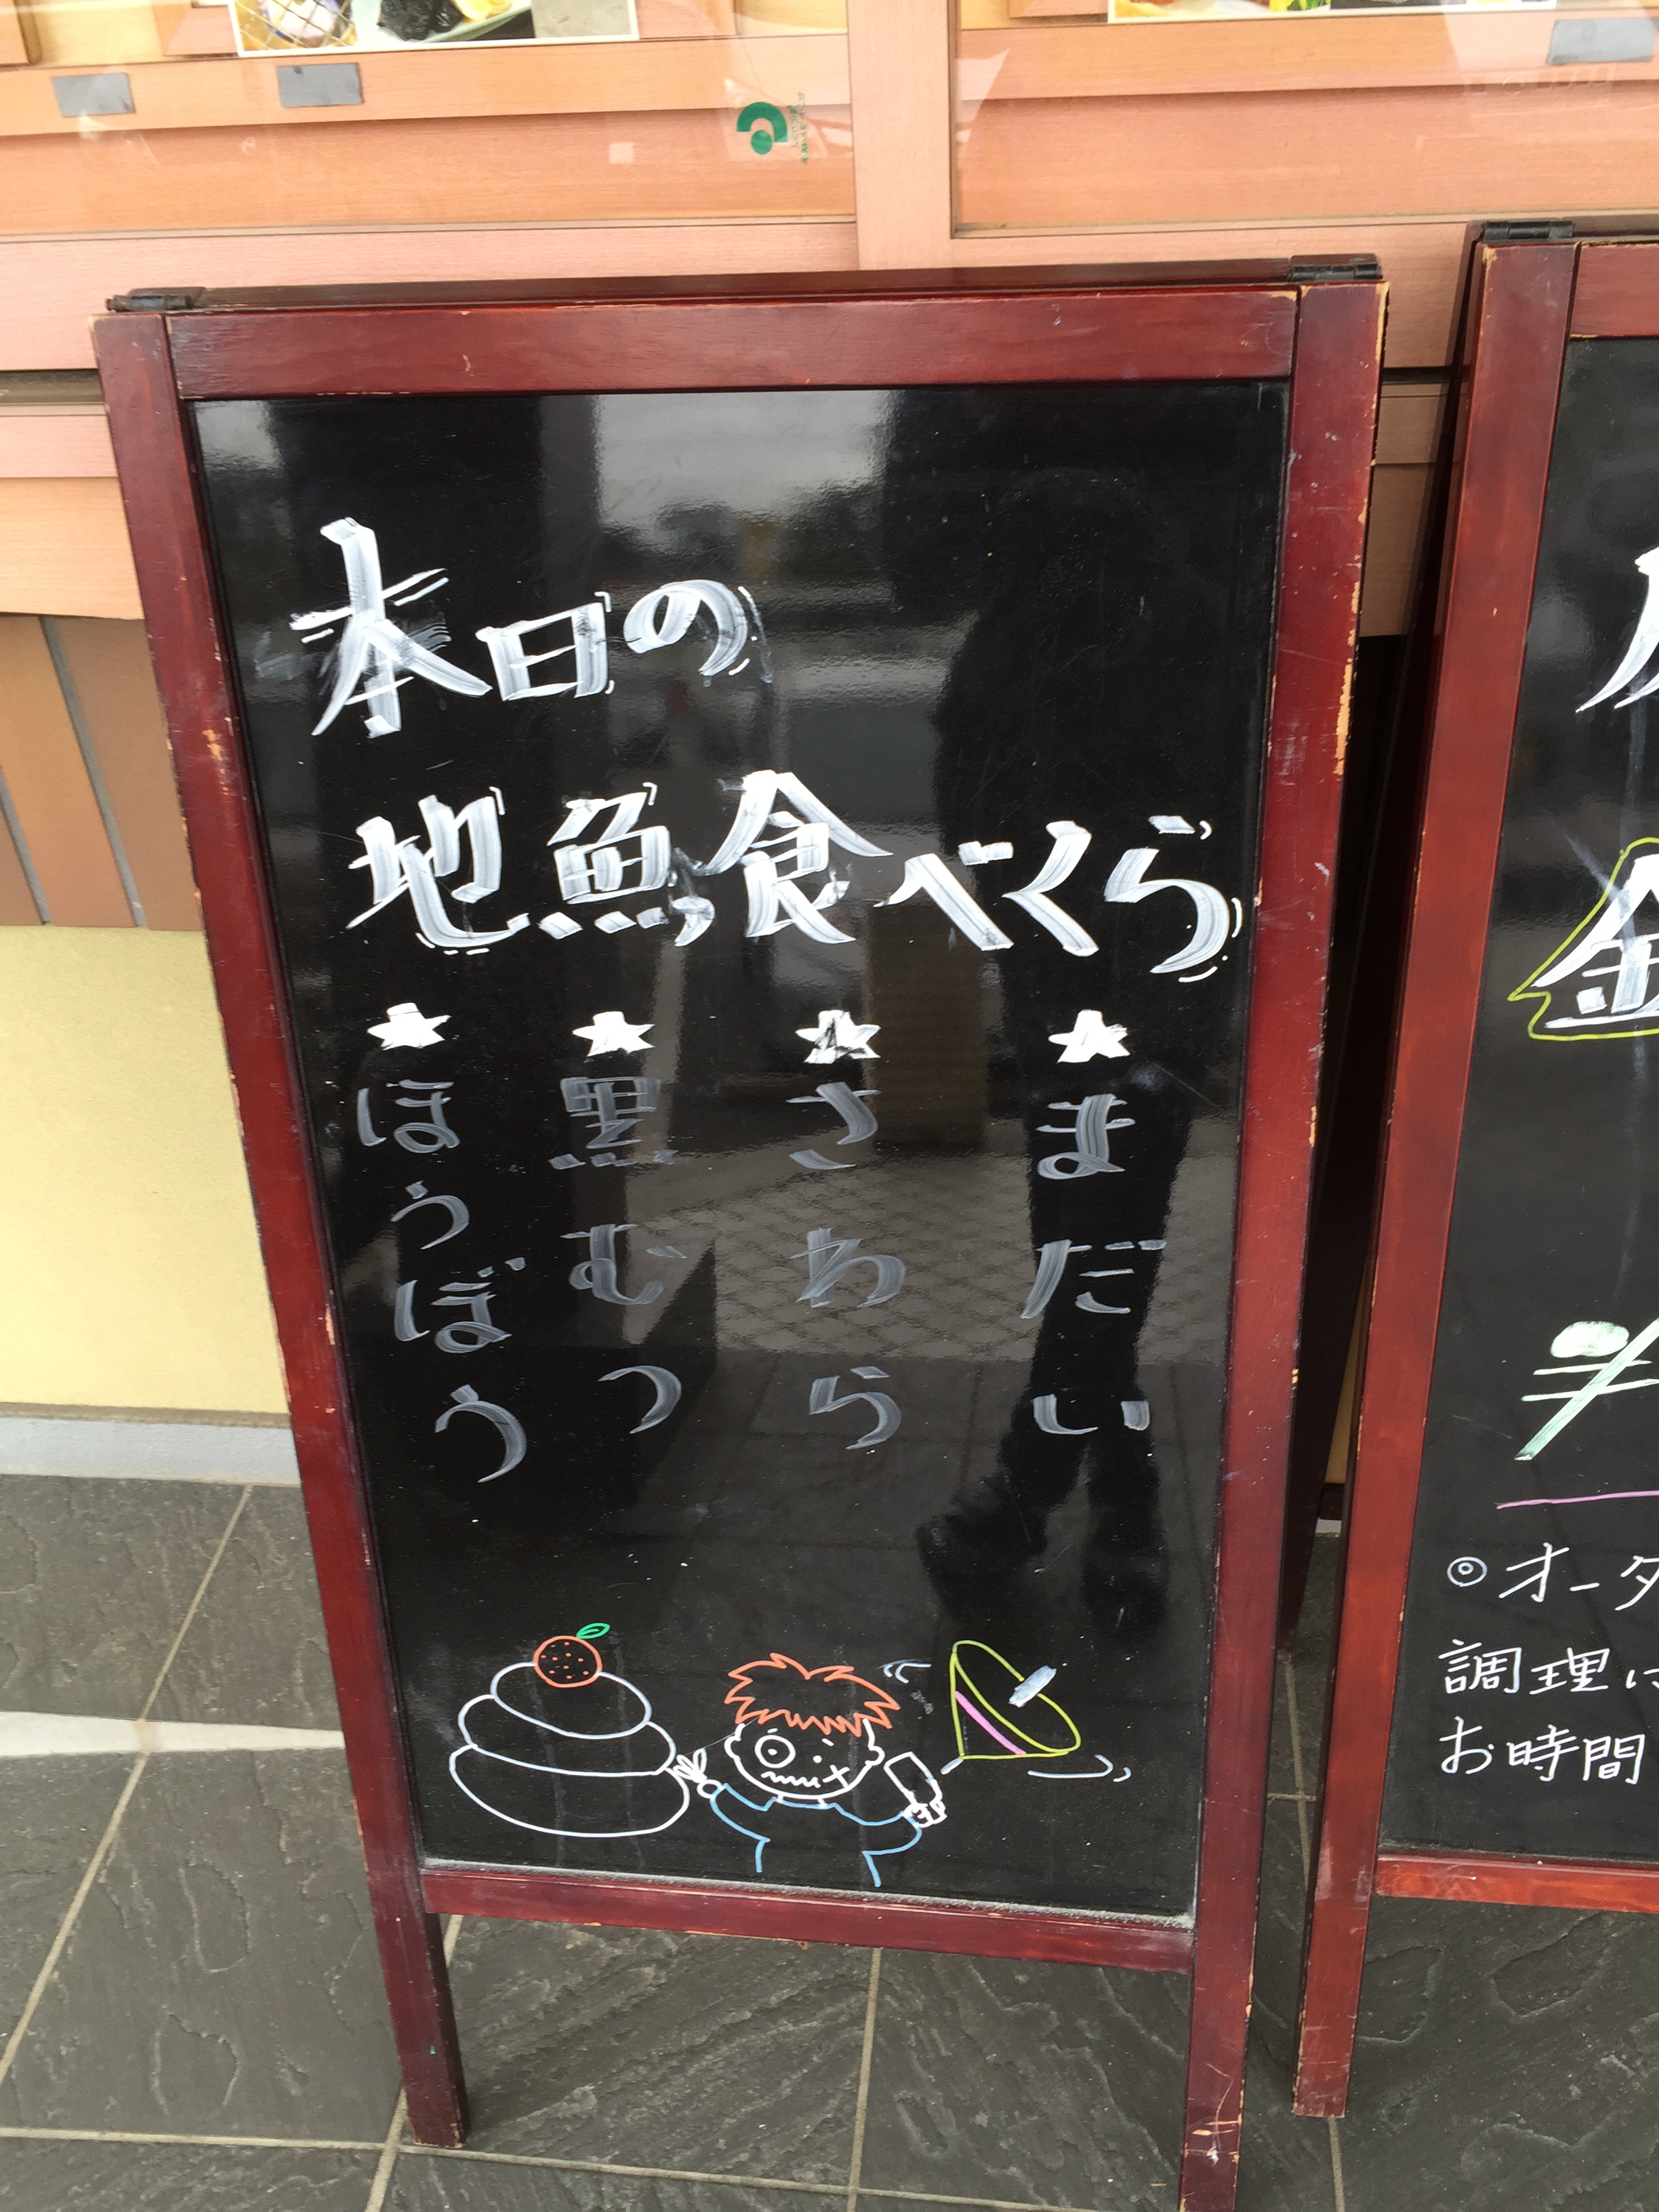 本日の
地魚食べくら
★まだい
★さわら
★黒むつ
★ほうぼう
◎オー
調理
お時間